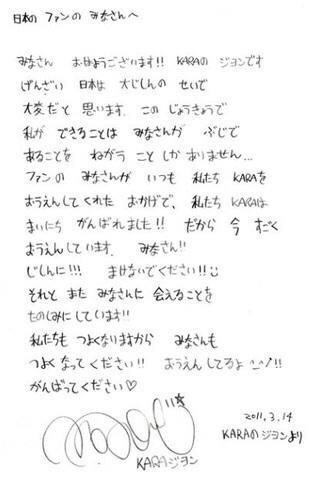 日本の ファンの みなさんへ
みなさん おはようございます!! KARAの ジヨンです
げんざい 日本は 大じしんの せいで
大変だと 思います. この じょうきょうで
私が できることは みなさんが ぶじで
あることを ねがう ことしか ありません...
ファンの みなさんが いつも 私たち KARAを
おうえんしてくれた おかげで、 私たち KARAは
まいにち がんばれました!! だから 今 すごく
おうえんしています. みなさん!!
じしんに!!! まけないでください!!
それと また みなさんに 会えることを
たのしみにしています!!
私たちも つよくなりますから みなさんも
つよくなってください!! おうえんしてるよ !!
がんばってください♡
2011.3.14
KARAジヨン
KARAの ジヨンより